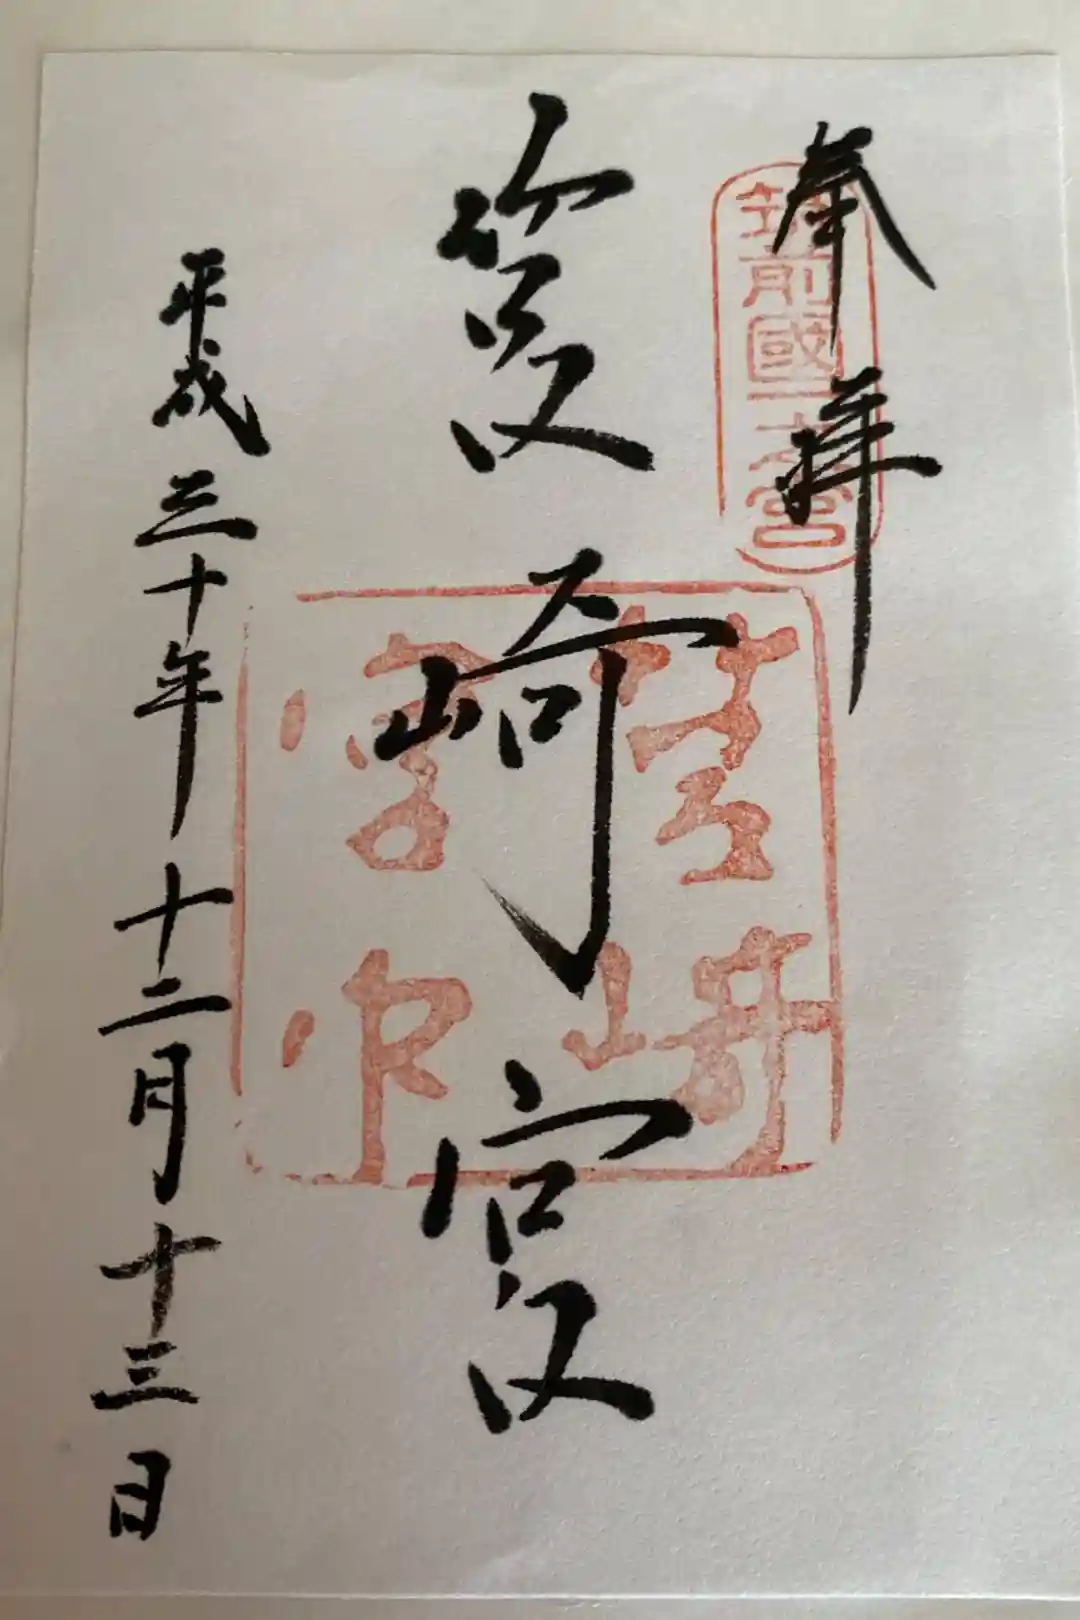 奉拝
筑前國一之宮
筥崎宮
筥崎
宮印
平成三十年十二月十三日